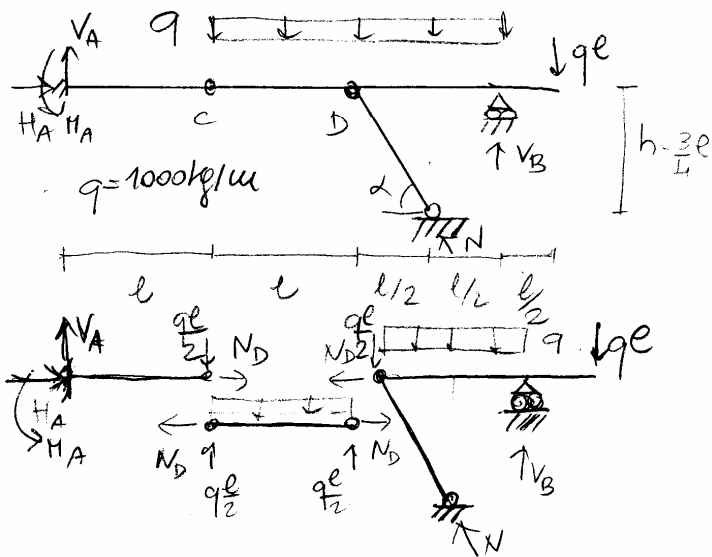 V_A q qℓ
H_A M_A C D V_B
q=1000kg/m α N
ℓ ℓ ℓ/2 ℓ/2 ℓ/2
V_A qℓ/2 N_D N_D qℓ/2 q qℓ
H_A
M_A N_D qℓ/2 qℓ/2 N_D V_B
N